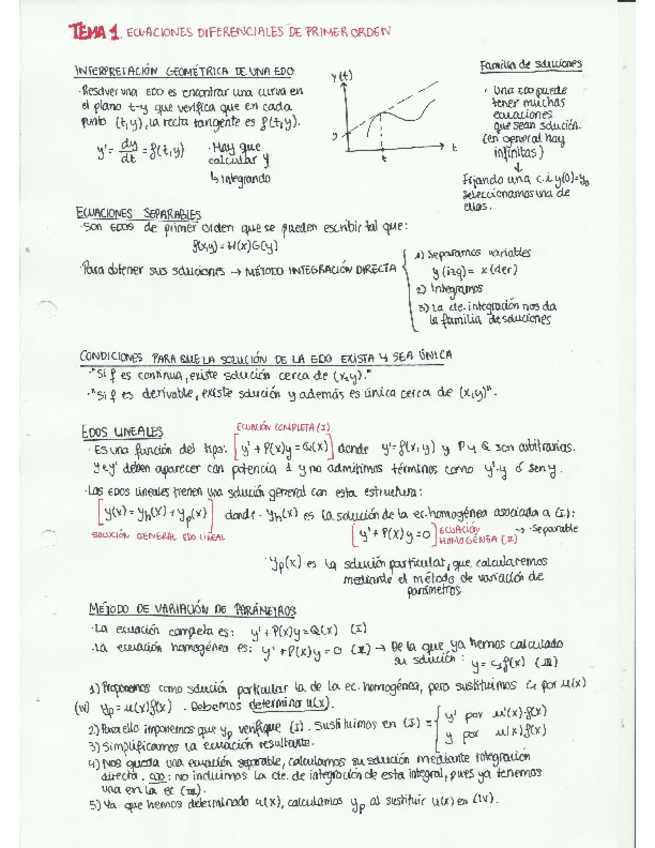 TEMA 1. ECUACIONES DIFERENCIALES DE PRIMER ORDEN
INTERPRETACIÓN GEOMÉTRICA DE UNA EDO
· Resolver una EDO es encontrar una curva en
el plano t-y que verifica que en cada
punto (t,y), la recta tangente es f(t,y).
y' = dy/dt = f(t,y)
· Hay que
calcular y
↳ Integrando
y(t)
y
t
t
Familia de soluciones
· Una EDO puede
tener muchas
ecuaciones
que sean solución.
(en general hay
infinitas)
↓
Fijando una c.i y(0)=y₀
seleccionamos una de
ellas.
ECUACIONES SEPARABLES
· Son EDOS de primer orden que se pueden escribir tal que:
f(x,y) = H(x)G(y)
· Para obtener sus soluciones → MÉTODO INTEGRACIÓN DIRECTA
1) Separamos variables
y (izq) = x (der)
2) Integramos
3) La cte. integración nos da
la familia de soluciones
CONDICIONES PARA QUE LA SOLUCIÓN DE LA EDO EXISTA Y SEA ÚNICA
· "Si f es continua, existe solución cerca de (x,y)."
· "Si f es derivable, existe solución y además es única cerca de (x,y)".
EDOS LINEALES
ECUACIÓN COMPLETA (I)
· Es una función del tipo: [y' + P(x)y = Q(x)] donde y' = f(x,y) y P y Q son arbitrarias.
y e y' deben aparecer con potencia 1 y no admitimos términos como y'·y ó sen y.
· Las EDOS lineales tienen una solución general con esta estructura:
[y(x) = yh(x) + yp(x)] donde · yh(x) es la solución de la ec. homogénea asociada a (I):
SOLUCIÓN GENERAL EDO LINEAL
[y' + P(x)y = 0] ECUACIÓN HOMOGÉNEA (II) → · Separable
· yp(x) es la solución particular, que calcularemos
mediante el método de variación de
parámetros
MÉTODO DE VARIACIÓN DE PARÁMETROS
· La ecuación completa es: y' + P(x)y = Q(x) (I)
· La ecuación homogénea es: y' + P(x)y = 0 (II) → De la que ya hemos calculado
su solución: y = C₁f(x) (III)
1) Proponemos como solución particular la de la ec. homogénea, pero sustituimos C₁ por u(x)
(IV) yp = u(x)f(x) . Debemos determinar u(x).
2) Para ello imponemos que yp verifique (I). Sustituimos en (I) = { y' por u'(x)·f(x)
y por u(x)f(x)
3) Simplificamos la ecuación resultante.
4) Nos queda una ecuación separable, calculamos su solución mediante integración
directa. : no incluimos la cte. de integración de esta integral, pues ya tenemos
una en la ec (III).
5) Ya que hemos determinado u(x), calculamos yp al sustituir u(x) en (IV).